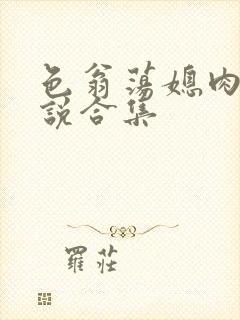 色翁荡媳肉
說合集
羅莊